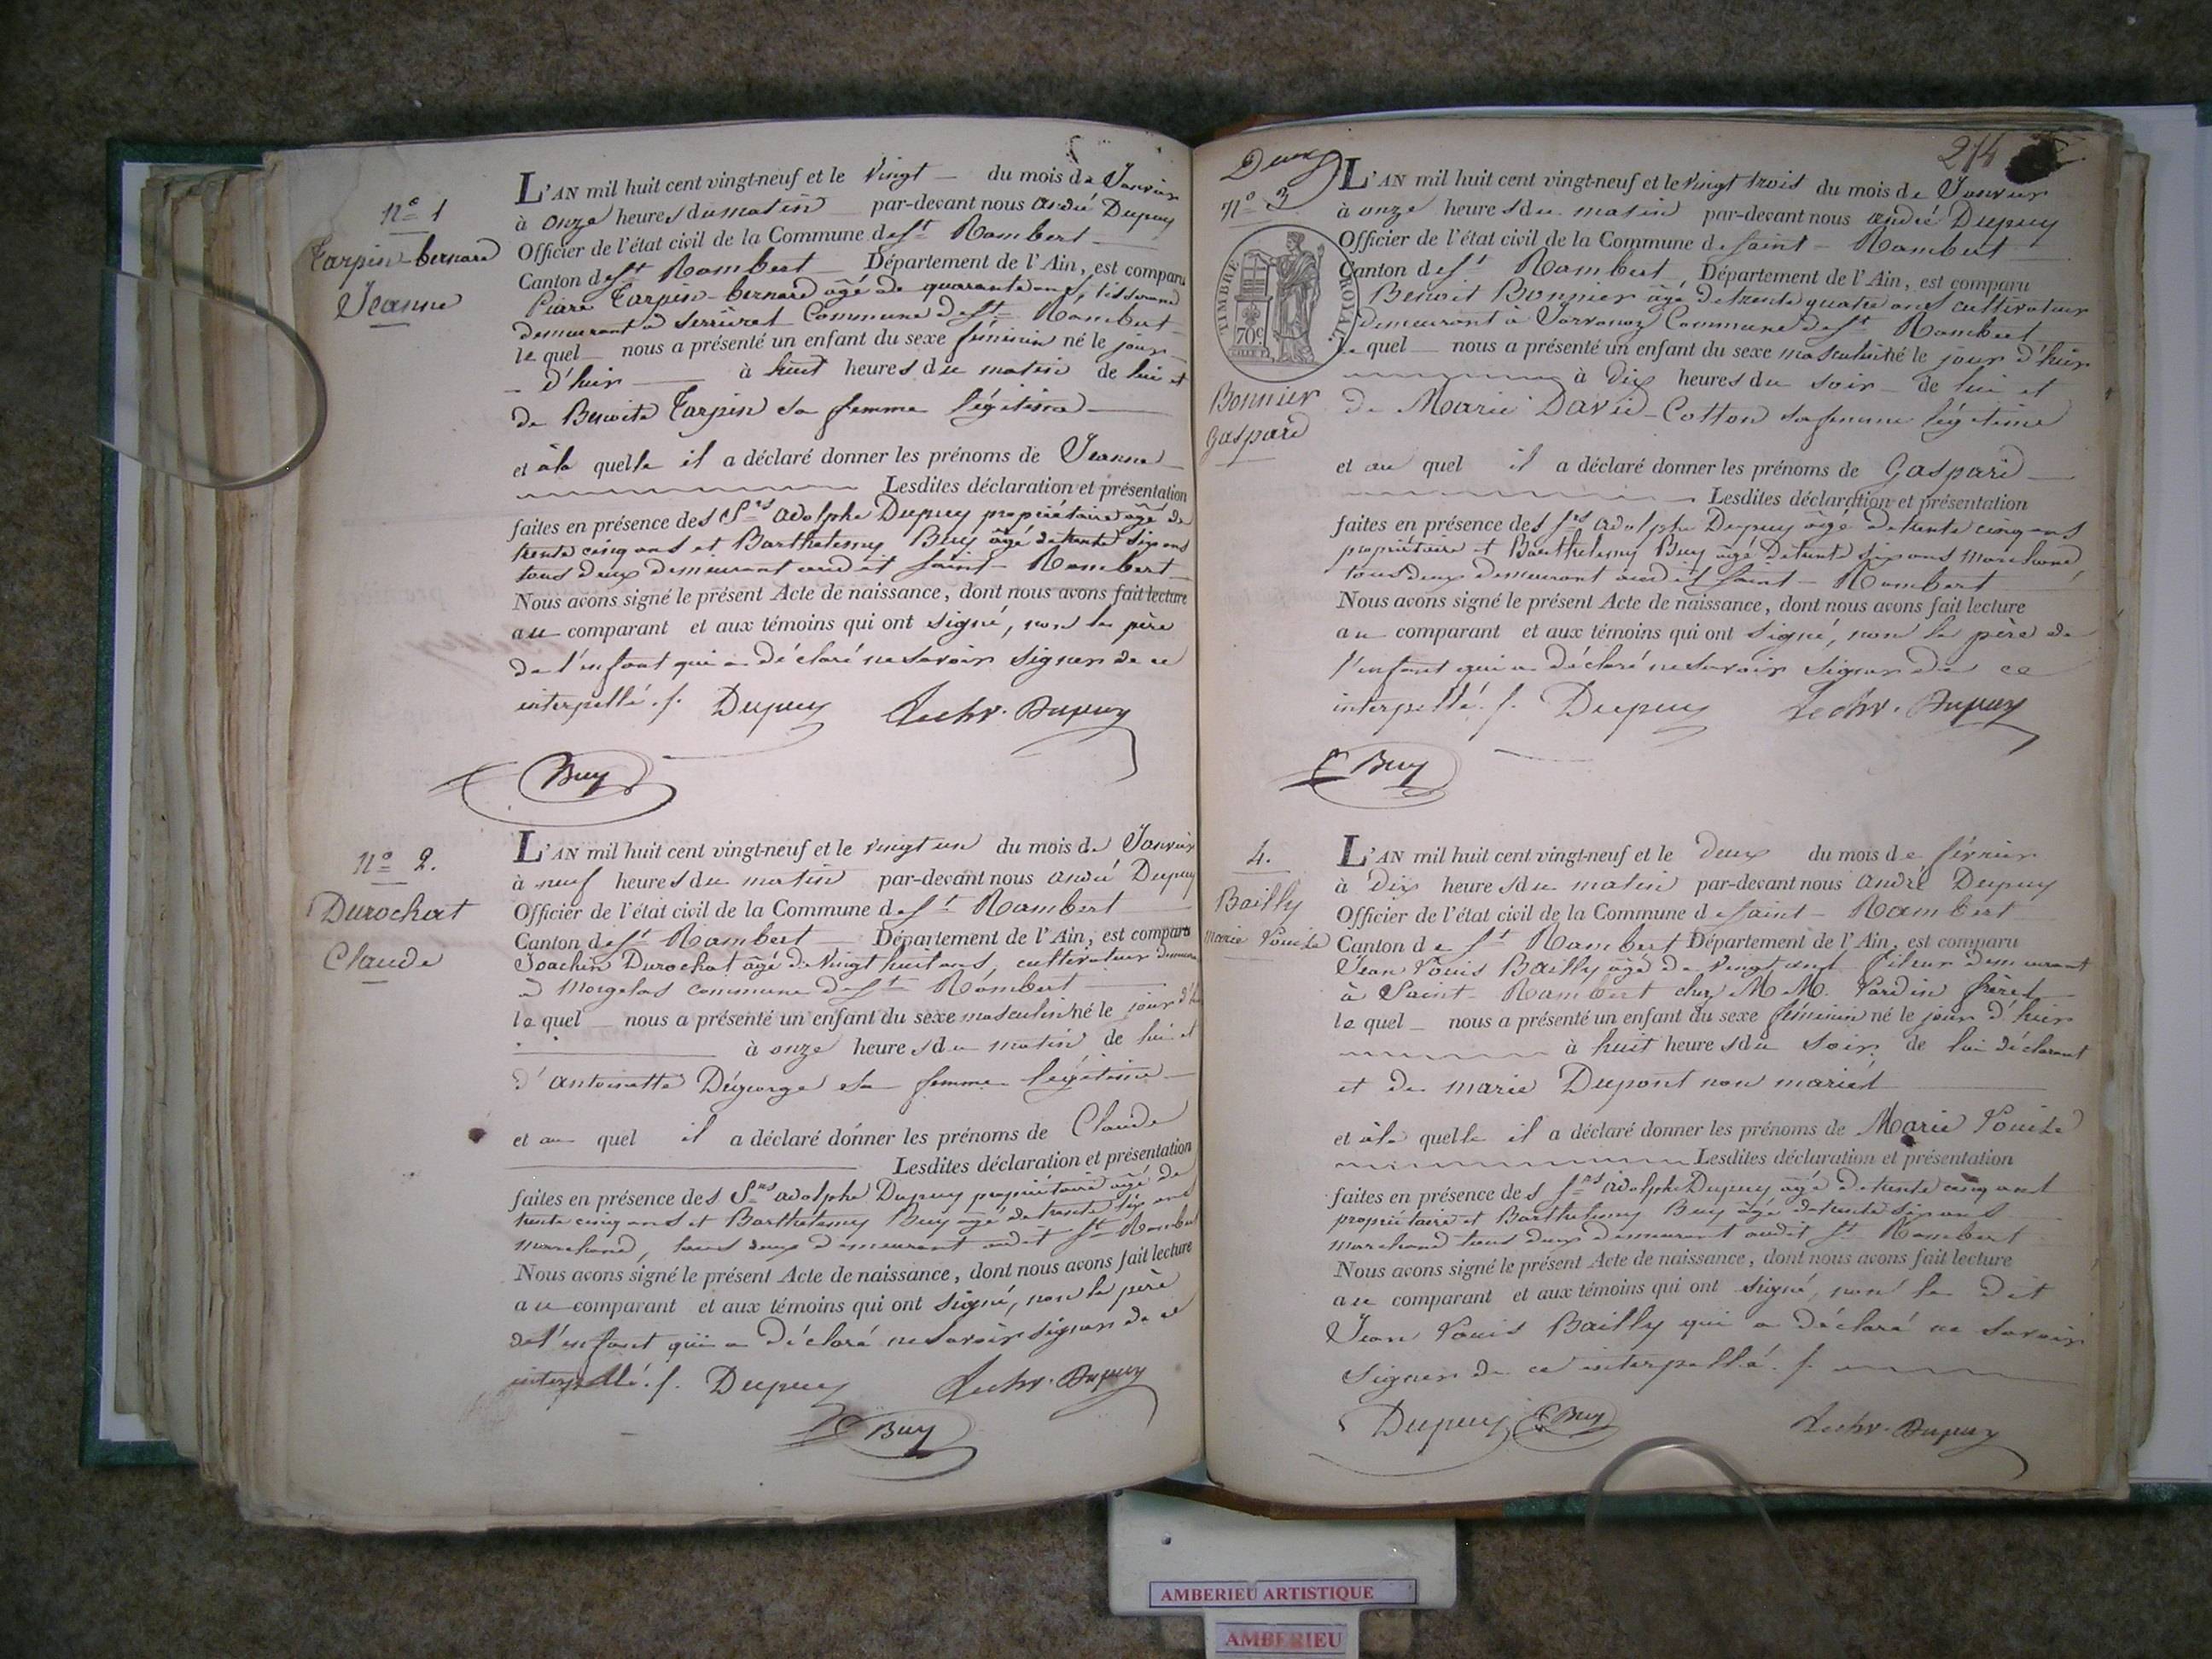 nº 1
Tarpin-bernard
Jeanne
L'AN mil huit cent vingt-neuf et le vingt du mois de Janvier
à onze heures du matin par-devant nous andré Dupuy
Officier de l'état civil de la Commune de St Rambert
Canton de St Rambert Département de l'Ain, est comparu
Piare Tarpin-bernard âgé de quarante ans, tisserand
demeurant à Serrières Commune de St Rambert
le quel nous a présenté un enfant du sexe féminin né le jour
d'hier à huit heures du matin de lui et
de Benoite Tarpin sa femme légitime
et à la quelle il a déclaré donner les prénoms de Jeanne
Lesdites déclaration et présentation
faites en présence des Srs adolphe Dupuy propriétaire âgé de
trente cinq ans et Barthelemy Buy âgé de trente six ans
tous deux demeurant audit saint-Rambert
Nous avons signé le présent Acte de naissance, dont nous avons fait lecture
au comparant et aux témoins qui ont signé, non le père
de l'enfant qui a déclaré ne savoir signer de ce
interpellé. /. Dupuy Dupuy
Buy
nº 2.
Durochat
Claude
L'AN mil huit cent vingt-neuf et le vingt un du mois de Janvier
à neuf heures du matin par-devant nous andré Dupuy
Officier de l'état civil de la Commune de St Rambert
Canton de St Rambert Département de l'Ain, est comparu
Joachin Durochat âgé de vingt huit ans, cultivateur
à Morgelas commune de St Rambert
le quel nous a présenté un enfant du sexe masculin né le jour d'hier
à onze heures du matin de lui et
d'antoinette Degeorge sa femme légitime
et au quel il a déclaré donner les prénoms de Claude
Lesdites déclaration et présentation
faites en présence des Srs adolphe Dupuy propriétaire âgé de
trente cinq ans et Barthélemy Buy âgé de trente six ans
marchand, tous deux demeurant audit St Rambert
Nous avons signé le présent Acte de naissance, dont nous avons fait lecture
au comparant et aux témoins qui ont signé, non le père
de l'enfant qui a déclaré ne savoir signer de ce
interpellé. /. Dupuy Dupuy
Buy
274
Deux
nº 3
TIMBRE ROYAL
70c
Bonnier
Gaspard
L'AN mil huit cent vingt-neuf et le vingt trois du mois de Janvier
à onze heures du matin par-devant nous andré Dupuy
Officier de l'état civil de la Commune de saint-Rambert
Canton de St Rambert Département de l'Ain, est comparu
Benoit Bonnier âgé de trente quatre ans cultivateur
demeurant à Javornoz Commune de St Rambert
le quel nous a présenté un enfant du sexe masculin né le jour d'hier
à dix heures du soir de lui et
de Marie David-Cotton sa femme légitime
et au quel il a déclaré donner les prénoms de Gaspard
Lesdites déclaration et présentation
faites en présence des Srs adolphe Dupuy âgé de trente cinq ans
propriétaire et Barthelemy Buy âgé de trente six ans marchand,
tous deux demeurant audit saint-Rambert
Nous avons signé le présent Acte de naissance, dont nous avons fait lecture
au comparant et aux témoins qui ont signé, non le père de
l'enfant qui a déclaré ne savoir signer de ce
interpellé. /. Dupuy Dupuy
Buy
4.
Bailly
marie Louise
L'AN mil huit cent vingt-neuf et le deux du mois de février
à dix heures du matin par-devant nous andré Dupuy
Officier de l'état civil de la Commune de saint-Rambert
Canton de St Rambert Département de l'Ain, est comparu
Jean Louis Bailly âgé de vingt ans fileur demeurant
à Saint-Rambert chez M M. Vardin frères
le quel nous a présenté un enfant du sexe féminin né le jour d'hier
à huit heures du soir de lui déclarant
et de marie Dupont non mariés
et à la quelle il a déclaré donner les prénoms de Marie Louise
Lesdites déclaration et présentation
faites en présence des Srs adolphe Dupuy âgé de trente cinq ans
propriétaire et Barthelemy Buy âgé de trente six ans
marchand tous deux demeurant audit St Rambert
Nous avons signé le présent Acte de naissance, dont nous avons fait lecture
au comparant et aux témoins qui ont signé, non le dit
Jean Louis Bailly qui a déclaré ne savoir
signer de ce interpellé. /.
Dupuy Buy Dupuy
AMBERIEU ARTISTIQUE
AMBERIEU